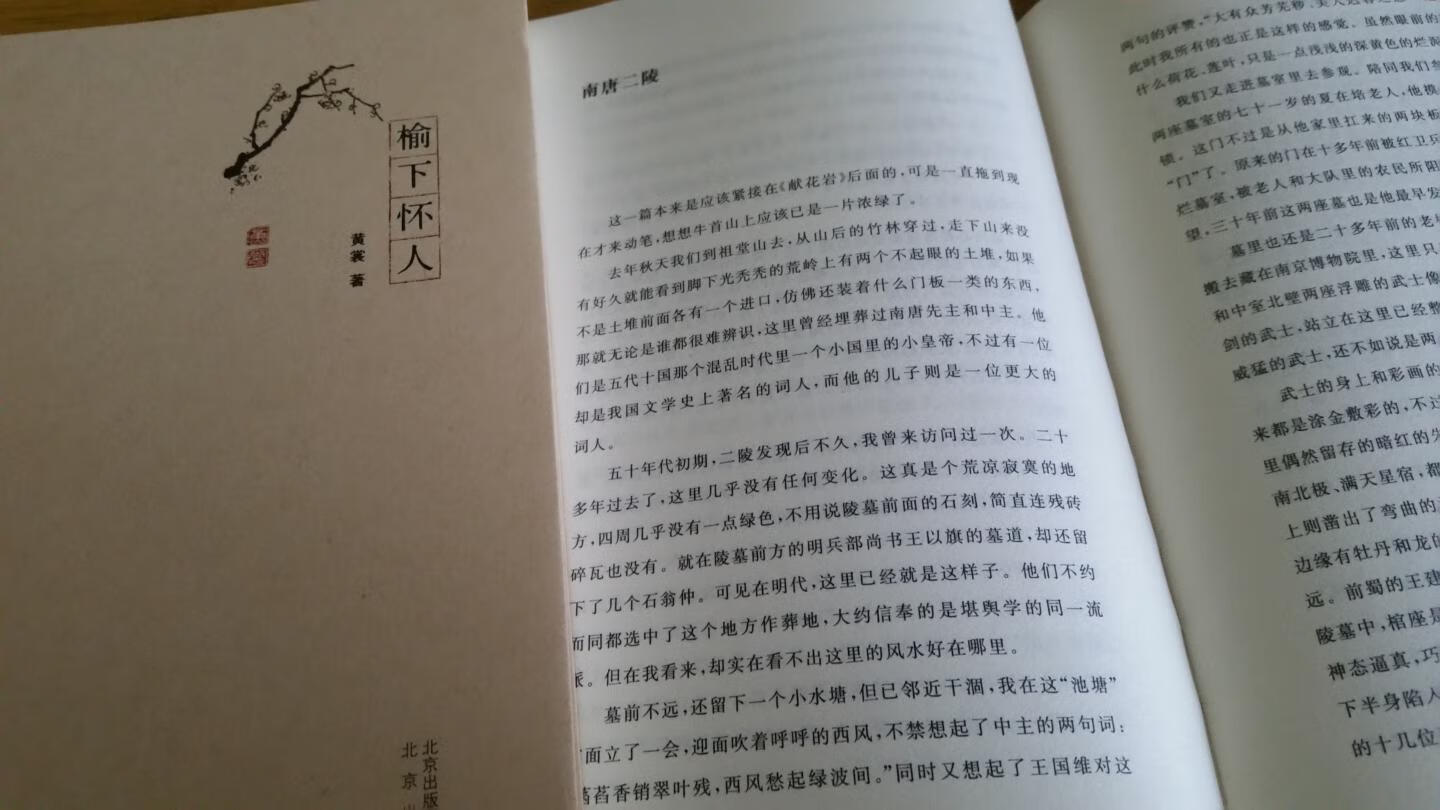 榆下怀人
黄裳 著
北京出版
北京出
南唐二陵
这一篇本来是应该紧接在《献花岩》后面的，可是一直拖到现
在才来动笔，想想牛首山上应该已是一片浓绿了。
去年秋天我们到祖堂山去，从山后的竹林穿过，走下山来没
有好久就能看到脚下光秃秃的荒岭上有两个不起眼的土堆，如果
不是土堆前面各有一个进口，仿佛还装着什么门板一类的东西，
那就无论是谁都很难辨识，这里曾经埋葬过南唐先主和中主。他
们是五代十国那个混乱时代里一个小国里的小皇帝，不过有一位
却是我国文学史上著名的词人，而他的儿子则是一位更大的
词人。
五十年代初期，二陵发现后不久，我曾来访问过一次。二十
多年过去了，这里几乎没有任何变化。这真是个荒凉寂寞的地
方，四周几乎没有一点绿色，不用说陵墓前面的石刻，简直连残砖
碎瓦也没有。就在陵墓前方的明兵部尚书王以旗的墓道，却还留
下了几个石翁仲。可见在明代，这里已经就是这样子。他们不约
而同都选中了这个地方作葬地，大约信奉的是堪舆学的同一流
派。但在我看来，却实在看不出这里的风水好在哪里。
墓前不远，还留下一个小水塘，但已邻近干涸，我在这“池塘”
面立了一会，迎面吹着呼呼的西风，不禁想起了中主的两句词：
菡萏香销翠叶残，西风愁起绿波间。”同时又想起了王国维对这
两句的评赞，“大有众芳芜秽、美人迟暮之感
此时我所有的也正是这样的感觉。虽然眼前的
什么荷花、莲叶，只是一点浅浅的深黄色的烂泥
我们又走进墓室里去参观。陪同我们参
两座墓室的七十一岁的夏在培老人，他摸
锁。这门不过是从他家里扛来的两块板
“门”了。原来的门在十多年前被红卫兵
烂墓室，被老人和大队里的农民所阻
望，三十年前这两座墓也是他最早发
墓里也还是二十多年前的老
搬去藏在南京博物院里，这里只
和中室北壁两座浮雕的武士像
剑的武士，站立在这里已经整
威猛的武士，还不如说是两
武士的身上和彩画的
来都是涂金敷彩的，不过
里偶然留存的暗红的朱
南北极、满天星宿，都
上则凿出了弯曲的
边缘有牡丹和龙的
远。前蜀的王建
陵墓中，棺座是
神态逼真，巧
下半身陷入
的十几位